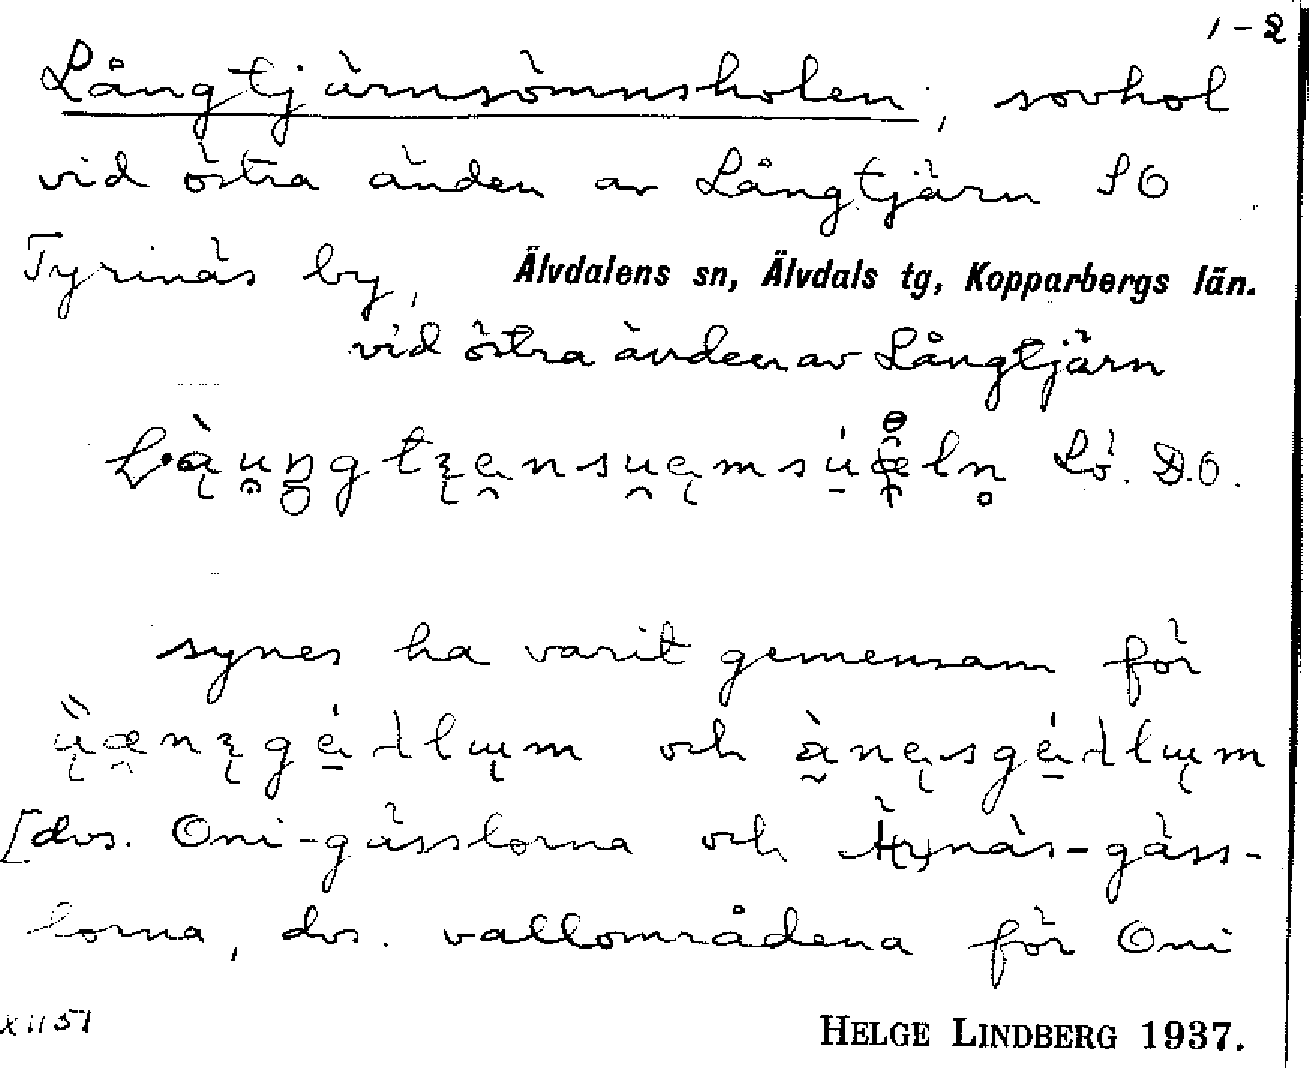 1-2
Långtjärnsömnsholen, sovhol
vid östra änden av Långtjärn SO
Tyrinäs by, Älvdalens sn, Älvdals tg, Kopparbergs län.
vid östra änden av Långtjärn
Lö. D.O.
synes ha varit gemensam för
och
[dvs. Oni-gässlorna och gäss-
lorna, dvs. vallområdena för Oni
X II 51
HELGE LINDBERG 1937.